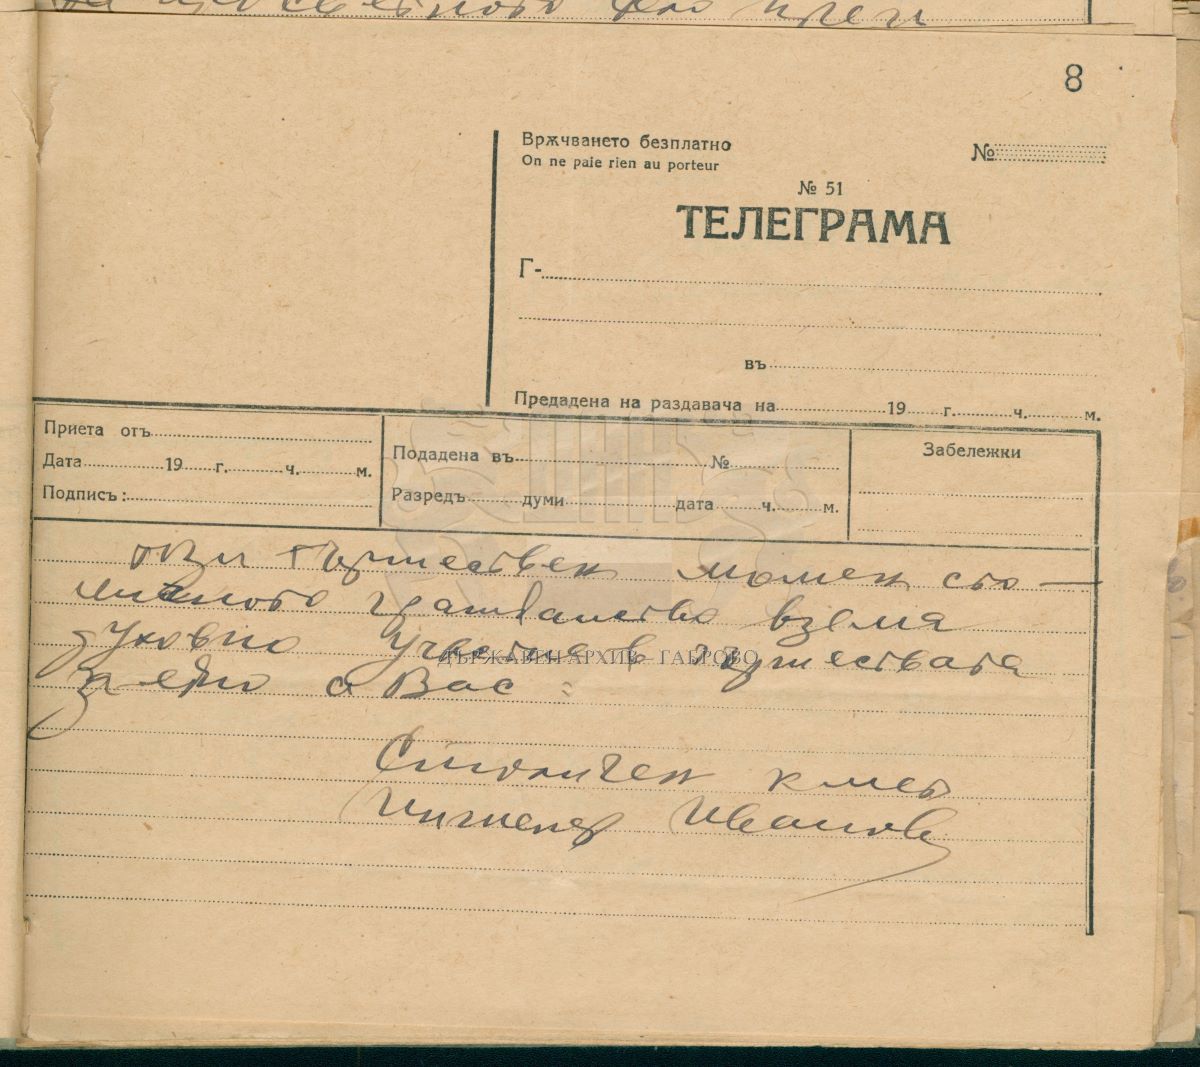 8
Врѫчването безплатно
On ne paie rien au porteur
№
№ 51
ТЕЛЕГРАМА
Г-
въ
Предадена на раздавача на 19 г. ч. м.
Приета отъ
Дата 19 г. ч. м.
Подписъ:
Подадена въ №
Разредъ думи дата ч. м.
Забележки
този тържествен момен сто—
личното гражданство взема
духовно участие в тържествата
заедно с Вас =
ДЪРЖАВЕН АРХИВ - ГАБРОВО
Столичен кмет
Инженер Иванов